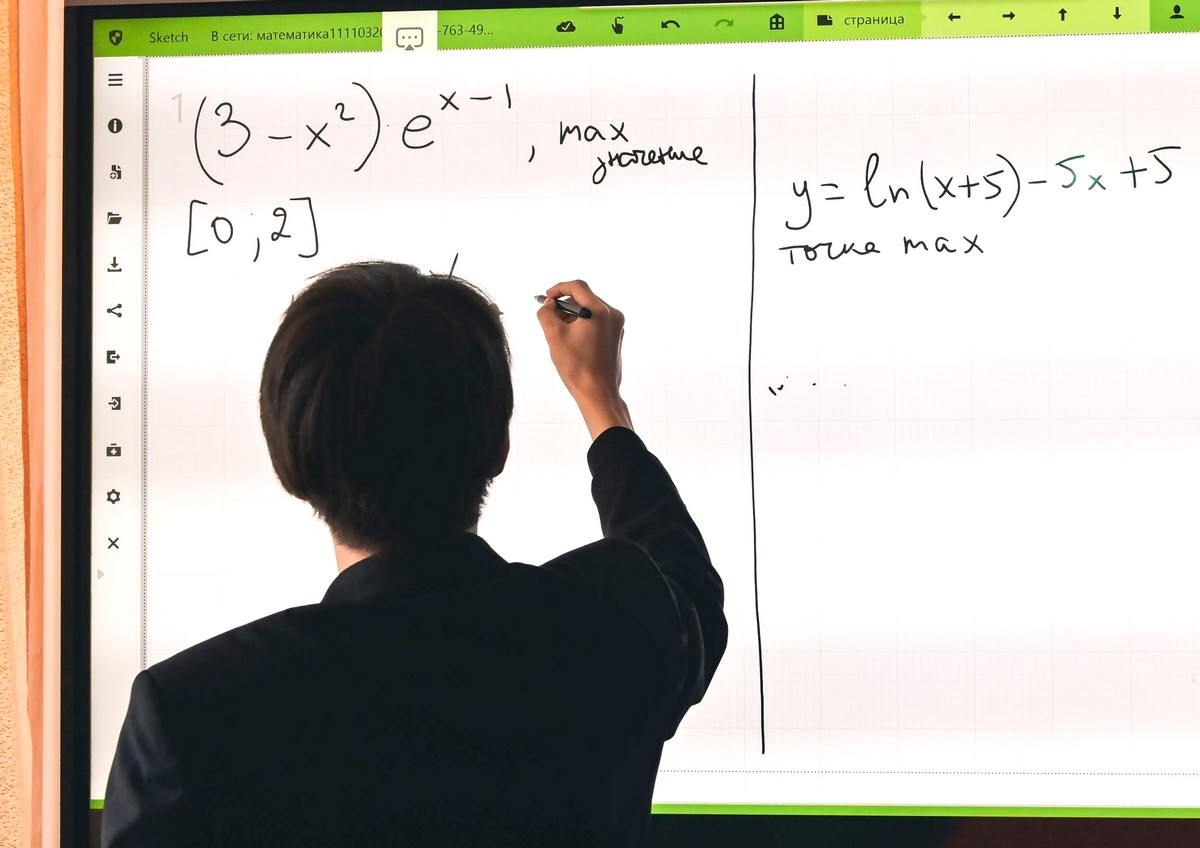 Sketch В сети: математика11110320 -763-49... страница
1
(3 - x²) · e^(x-1), max
значение
[0; 2]
y = ln(x+5) - 5x + 5
точка max